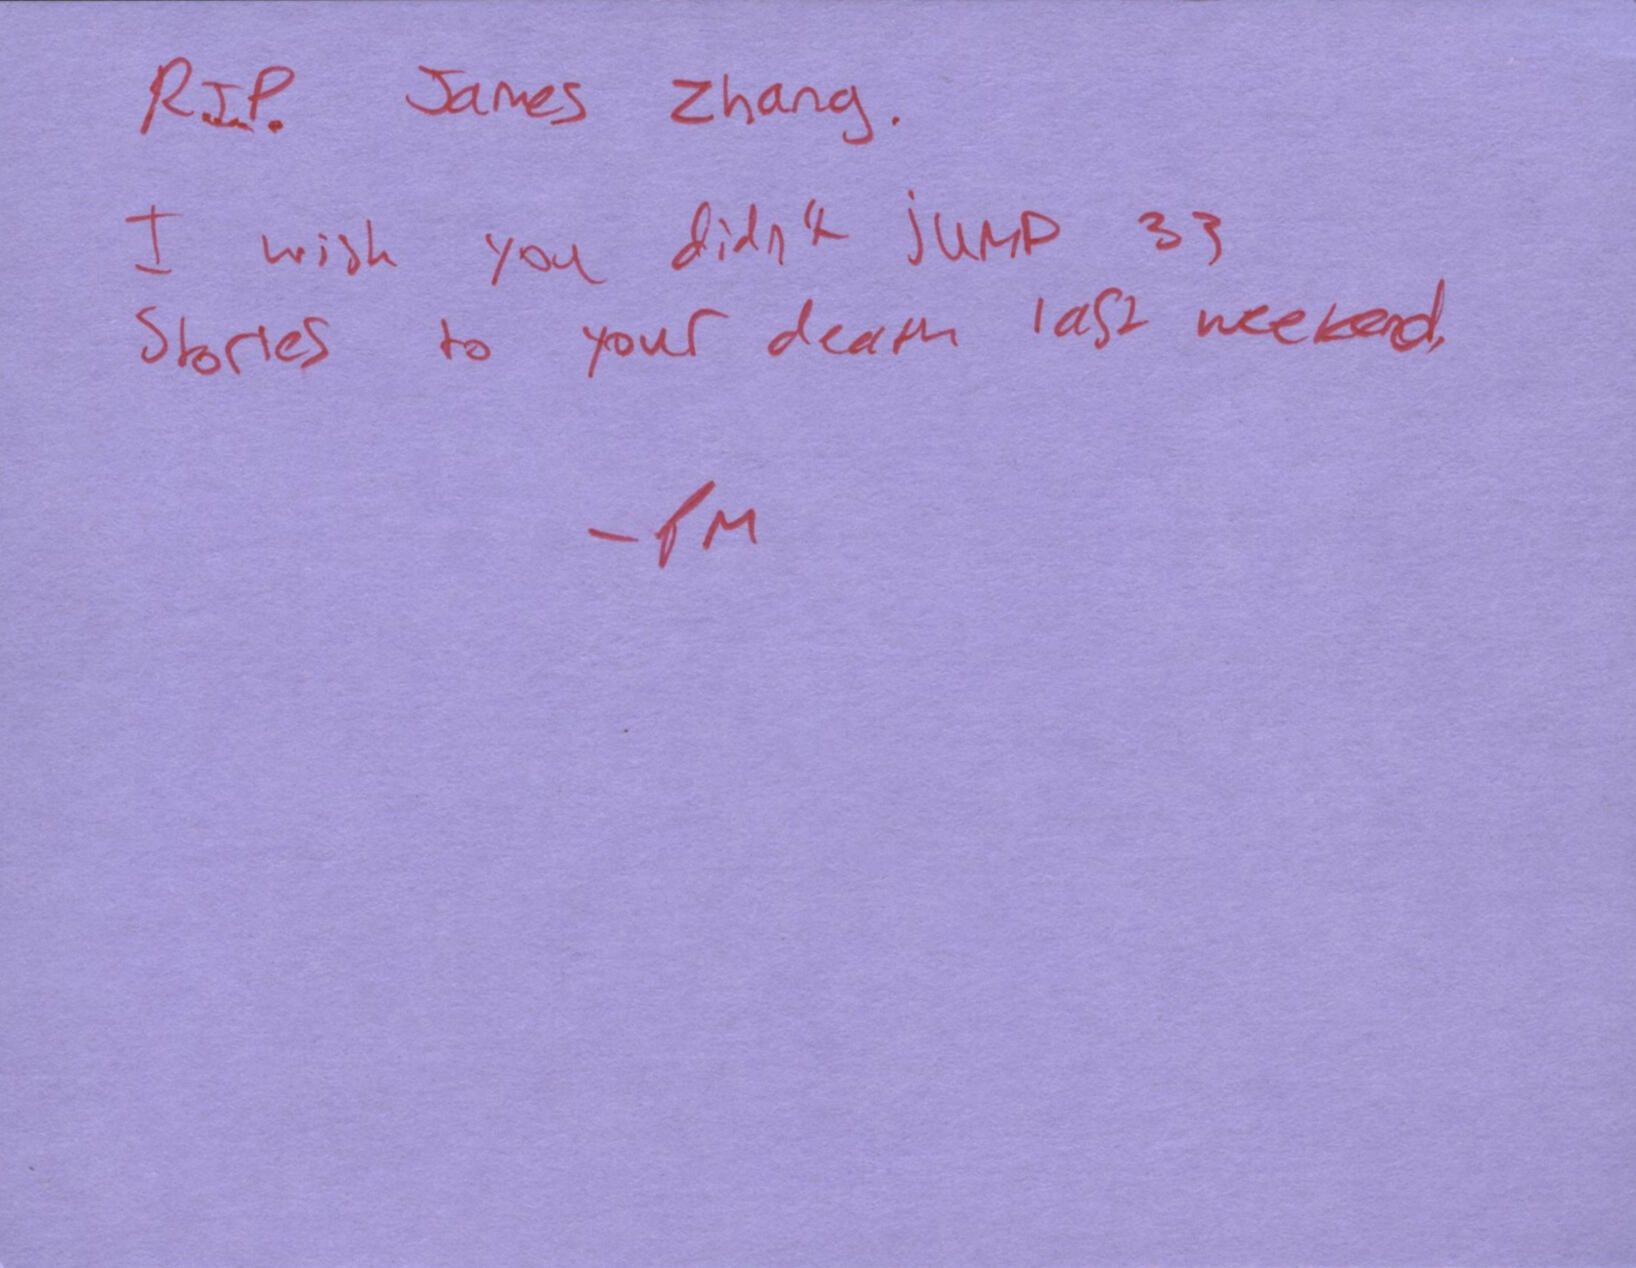 R.I.P. James Zhang.
I wish you didn't jump 33
Stories to your death last weekend.
-PM